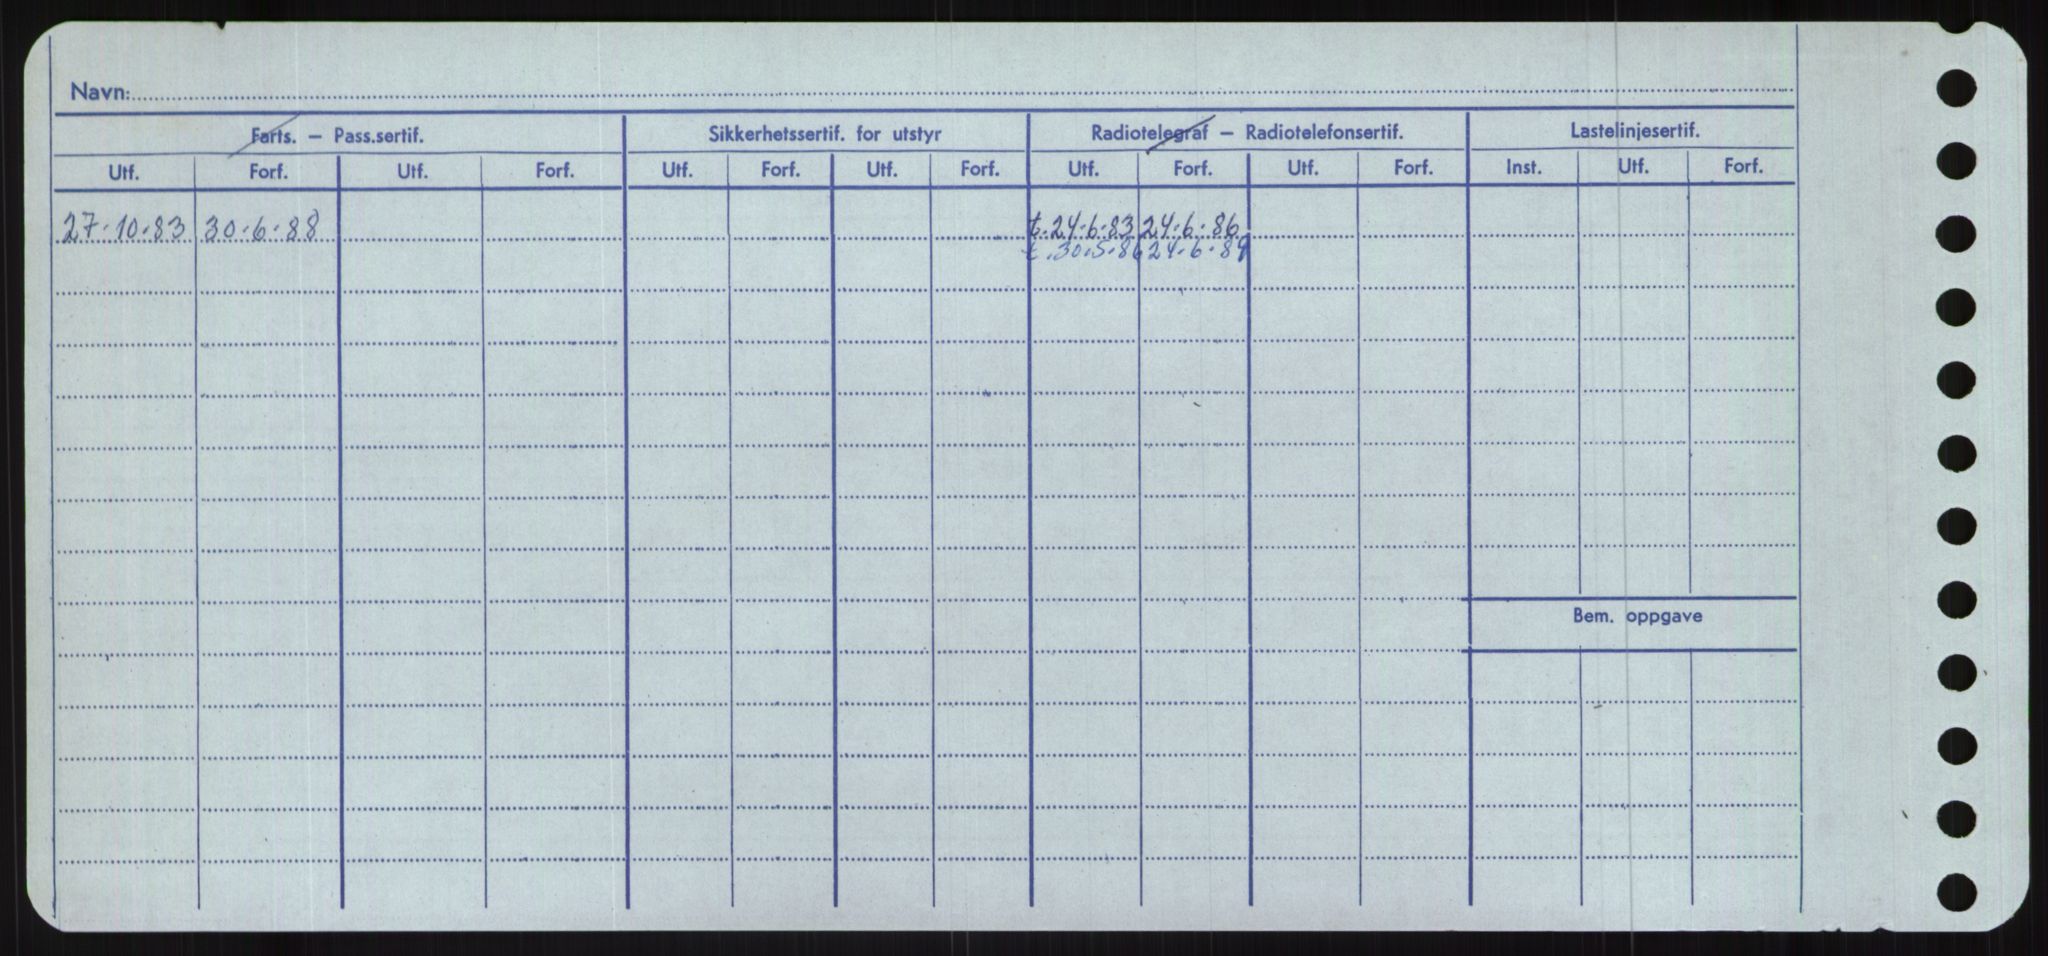 Navn:
Farts. – Pass.sertif. Sikkerhetssertif. for utstyr Radiotelegraf – Radiotelefonsertif. Lastelinjesertif.
Utf. Forf. Utf. Forf. Utf. Forf. Utf. Forf. Utf. Forf. Utf. Forf. Inst. Utf. Forf.
27.10.83 30.6.88 t.24.6.83 24.6.86
t.30.5.86 24.6.89
Bem. oppgave